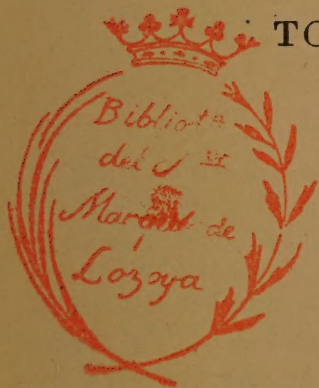 TO
Biblioteca
del S.or
Marqués de
Lozoya